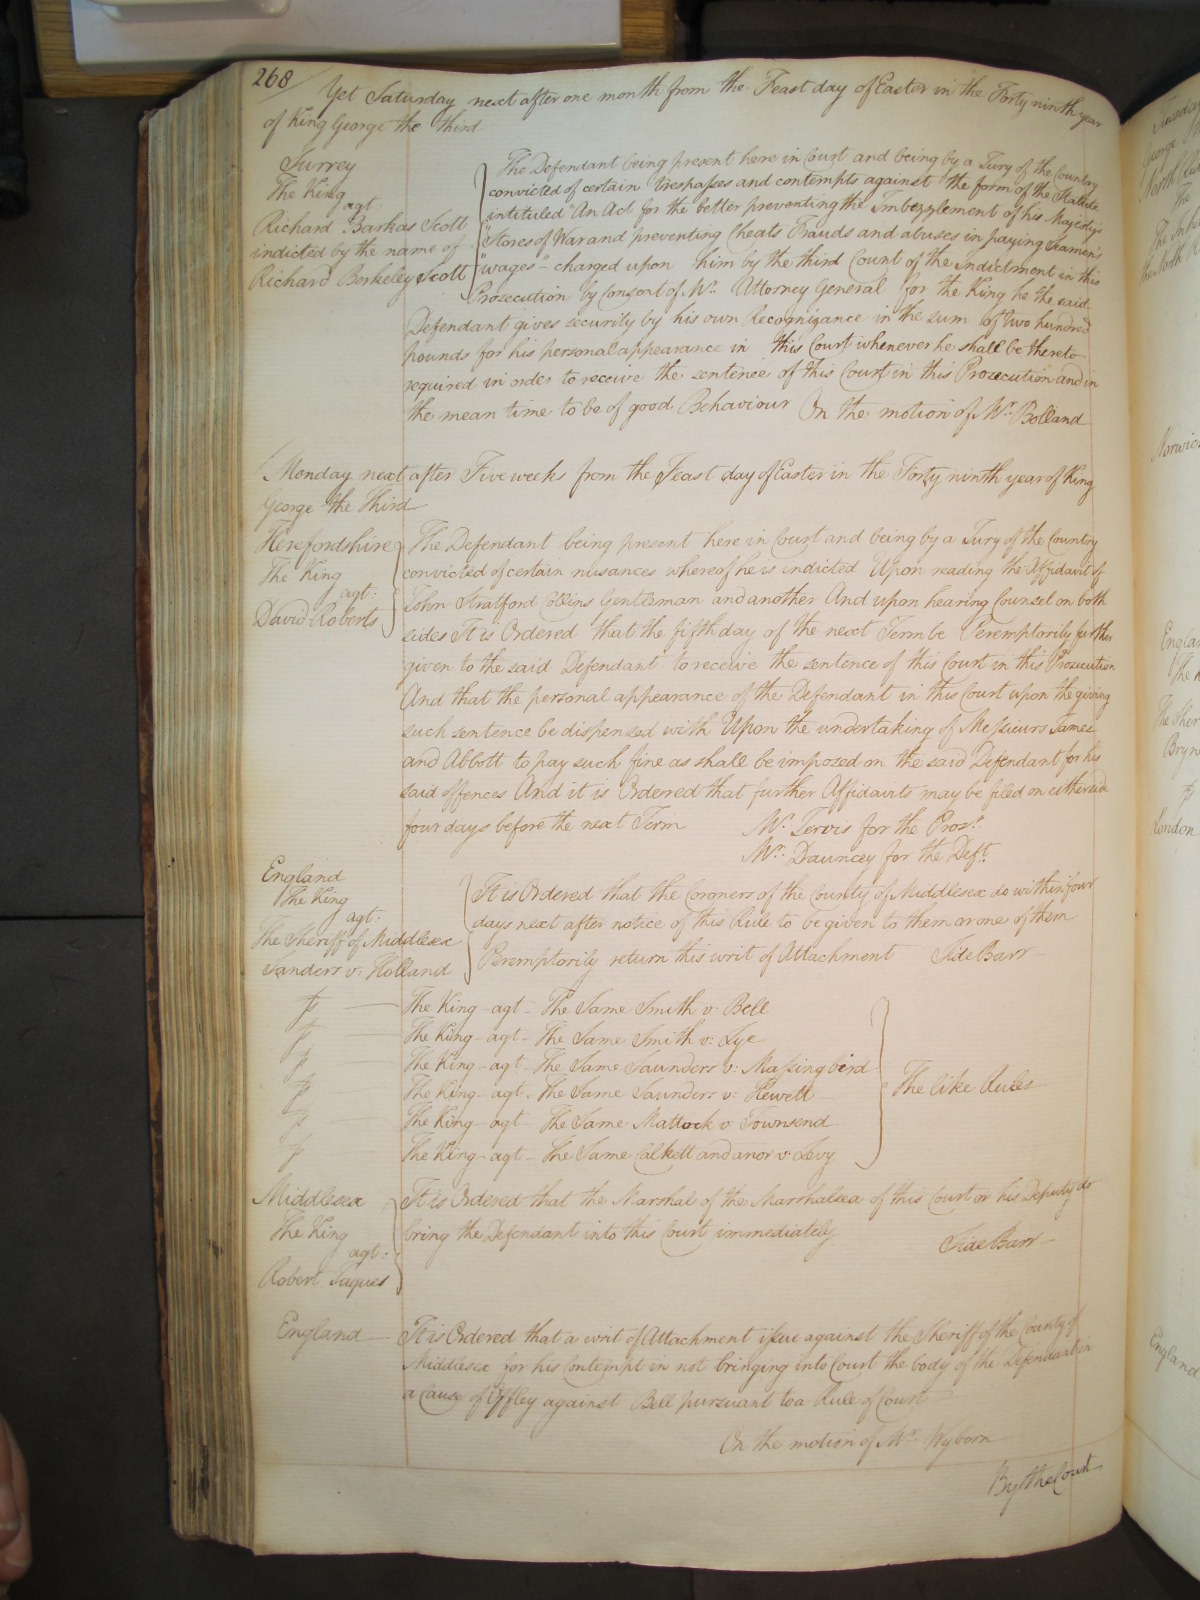 268
Yet Saturday next after one month from the Feast day of Easter in the Forty ninth year
of King George the third
Surrey
The King
agt:
Richard Barkas Scott
indicted by the name of
Richard Berkeley Scott
The Defendant being present here in Court and being by a Jury of the Country
convicted of certain trespasses and contempts against the form of the Statute
intituled "An Act for the better preventing the Imbezzlement of his Majesty's
"Stores of War and preventing Cheats Frauds and abuses in paying Seamen's
"wages" - charged upon him by the third Count of the Indictment in this
Prosecution by Consent of Mr. Attorney General for the King he the said
Defendant gives security by his own Recognizance in the sum of two hundred
pounds for his personal appearance in this Court whenever he shall be thereto
required in order to receive the sentence of this Court in this Prosecution and in
the mean time to be of good Behaviour On the motion of Mr. Bolland
Monday next after Five weeks from the Feast day of Easter in the Forty ninth year of King
George the Third
Herefordshire
The King
agt:
David Roberts
The Defendant being present here in Court and being by a Jury of the Country
convicted of certain nusances whereof he is indicted Upon reading the Affidavit of
John Stratford Collins Gentleman and another And upon hearing Counsel on both
sides It is Ordered that the fifth day of the next Term be Peremptorily further
given to the said Defendant to receive the sentence of this Court in this Prosecution
And that the personal appearance of the Defendant in this Court upon the giving
such sentence be dispensed with Upon the undertaking of Messieurs James
and Abbott to pay such fine as shall be imposed on the said Defendant for his
said offences And it is Ordered that further Affidavits may be filed on either side
four days before the next Term Mr. Jervis for the Prosr.
Mr. Dauncey for the Deft.
England
The King
agt:
The Sheriff of Middlesex
Sanders v: Holland
It is Ordered that the Coroners of the County of Middlesex do within four
days next after notice of this Rule to be given to them or one of them
Peremptorily return this writ of Attachment Side Barr
The King - agt - The Same Smith v: Bell
The King - agt - The Same Smith v: Lye
The King - agt - The Same Saunders v: Massingbird
The King - agt - The Same Saunders v: Hewett
The King - agt - The Same Mattock v: Townsend
The King - agt - The Same Calkett and anor v: Levy
The like Rules
Middlesex
The King
agt:
Robert Jaques
It is Ordered that the Marshal of the Marshalsea of this Court or his Deputy do
bring the Defendant into this Court immediately
Side Barr
England
It is Ordered that a writ of Attachment issue against the Sheriff of the County of
Middlesex for his Contempt in not bringing into Court the body of the Defendant in
a Cause of Iffley against Bell pursuant to a Rule of Court
On the motion of Mr. Wyborn
By the Court
The
England
London
England